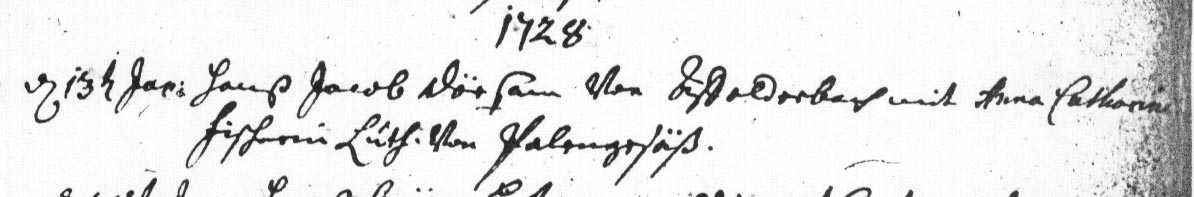 1728
d 13t Jan: Hanß Jacob Dörsam von Aschelderbach mit Anna Catharina
Fischerin Luth: von Falengesäß.